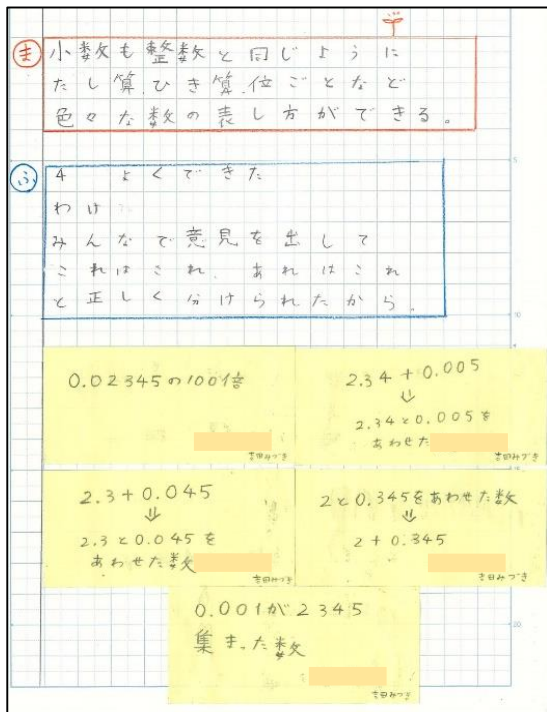 ま
小数も整数と同じように
たし算、ひき算、位ごとなど
色々な数の表し方ができる。
ふ
4 よくできた
わけ
みんなで意見を出して
これはこれ、あれはこれ
と正しく分けられたから。
5
10
20
0.02345の100倍
吉田みづき
2.34+0.005
⇓
2.34と0.005を
あわせた
吉田みづき
2.3+0.045
⇓
2.3と0.045を
あわせた数
吉田みづき
2と0.345をあわせた数
⇓
2+0.345
吉田みづき
0.001が2345
集まった数
吉田みづき